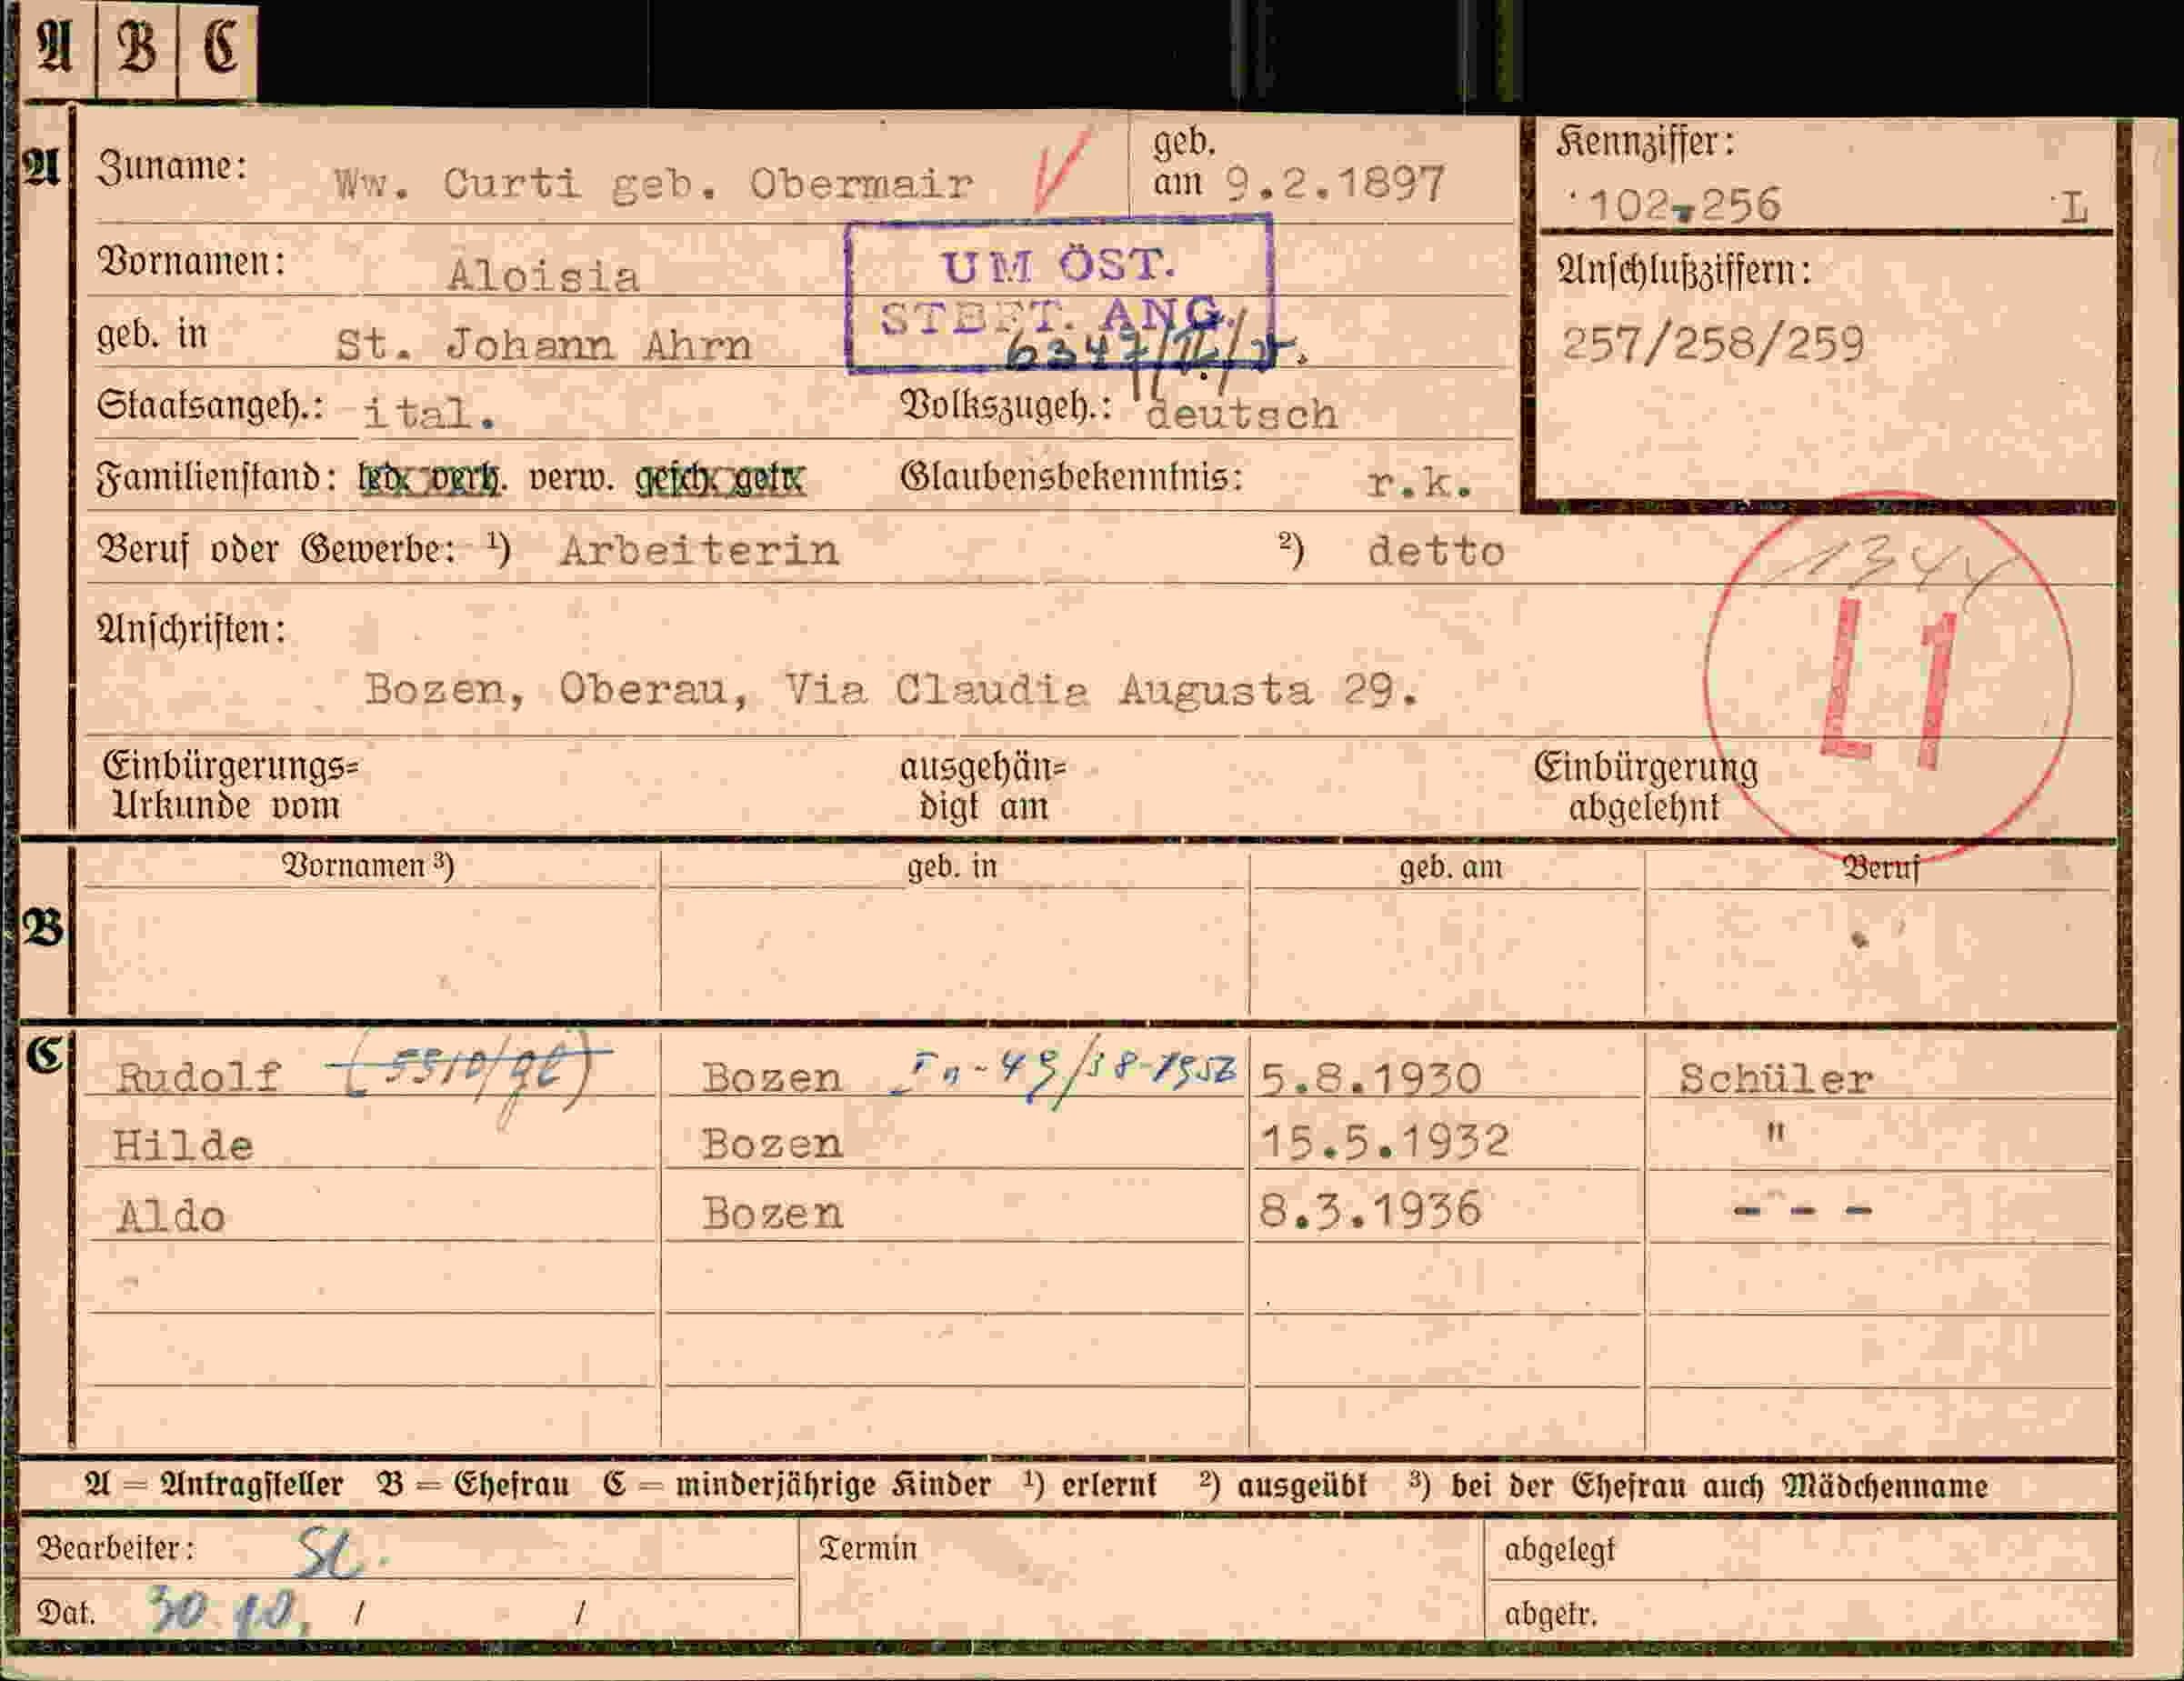 A B C
A Zuname: Ww. Curti geb. Obermair geb. am 9.2.1897
Kennziffer: 102-256 L
Vornamen: Aloisia
UM ÖST.
STBFT. ANG.
Anschlußziffern:
257/258/259
geb. in St. Johann Ahrn
Staatsangeh.: ital. Volkszugeh.: deutsch
Familienstand: led. verh. verw. gesch. getr. Glaubensbekenntnis: r.k.
Beruf oder Gewerbe: ¹) Arbeiterin ²) detto
1344
L1
Anschriften:
Bozen, Oberau, Via Claudia Augusta 29.
Einbürgerungs= ausgehän= Einbürgerung
Urkunde vom digt am abgelehnt
B Vornamen ³) geb. in geb. am Beruf
C Rudolf Bozen 5.8.1930 Schüler
Hilde Bozen 15.5.1932 "
Aldo Bozen 8.3.1936 - - -
A = Antragsteller B = Ehefrau C = minderjährige Kinder ¹) erlernt ²) ausgeübt ³) bei der Ehefrau auch Mädchenname
Bearbeiter: Termin abgelegt
Dat. 30.10. / / abgetr.